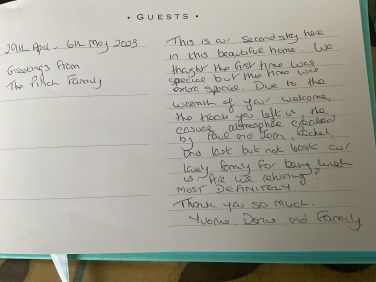 • GUESTS •
29th April - 6th May 2003
Greetings from
The Pinch Family
This is our second stay here
in this beautiful home. We
thought the first time was
special but this time was
extra special. Due to the
warmth of your welcome,
the you left us the
casual atmosphere created
by Paul and Joan, Rachel,
and last but not least our
lovely family for being with
us. Are we returning?
MOST DEFINITELY.
Thank you so much.
Yvonne, and Family